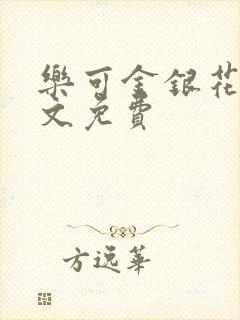 樂可金銀花
文免費
方逸華